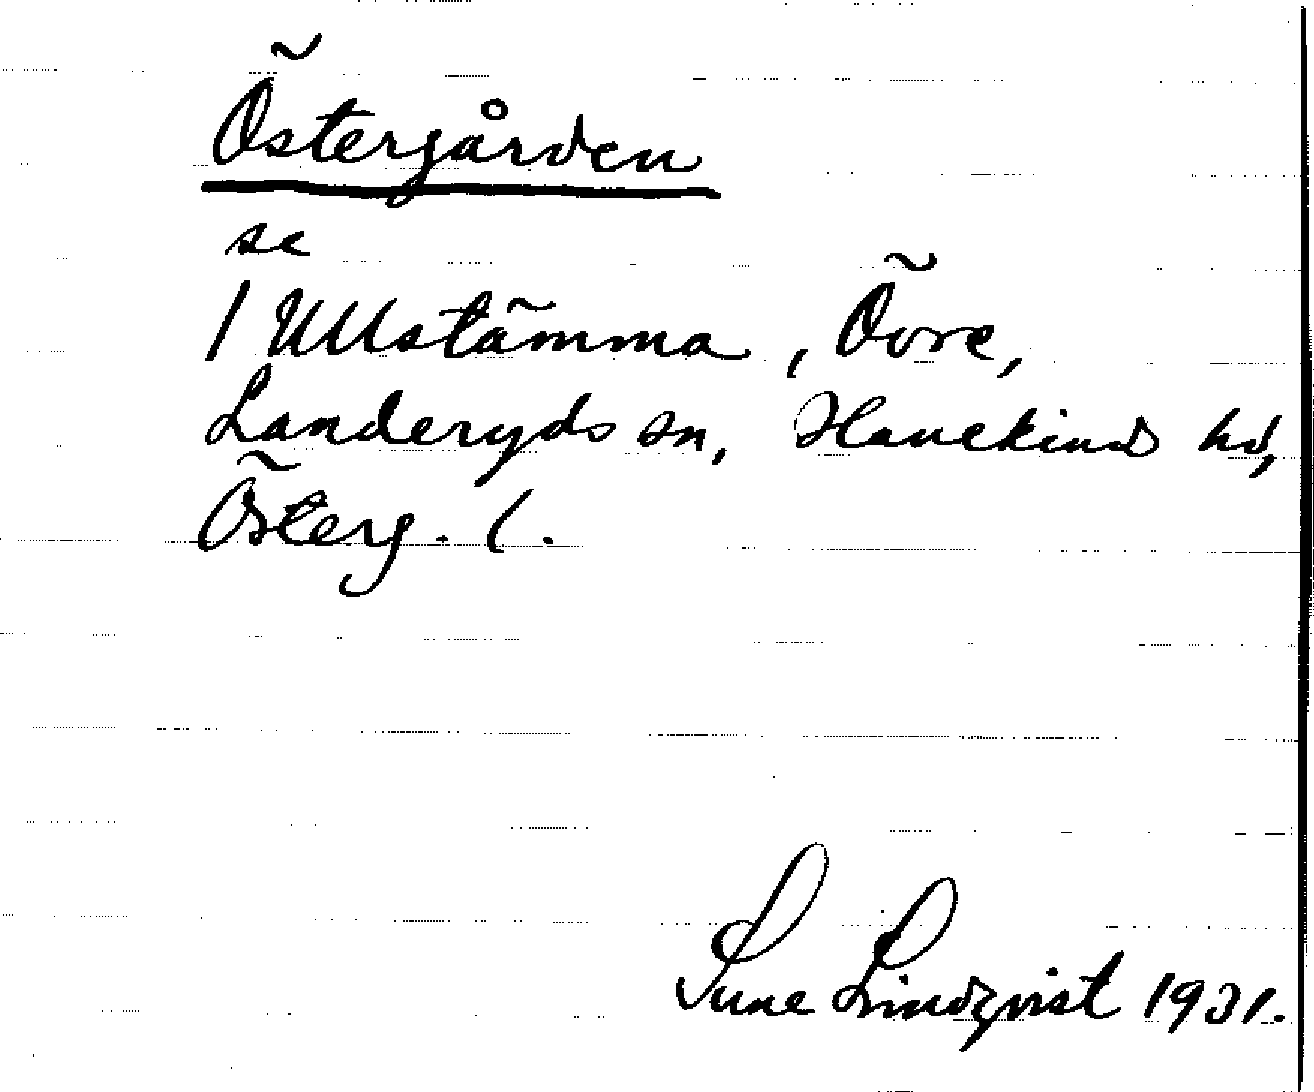 Östergården
se
1 Ullstämma, Övre,
Landeryds sn, Hanekind hd,
Österg. l.
Sune Lindqvist 1931.